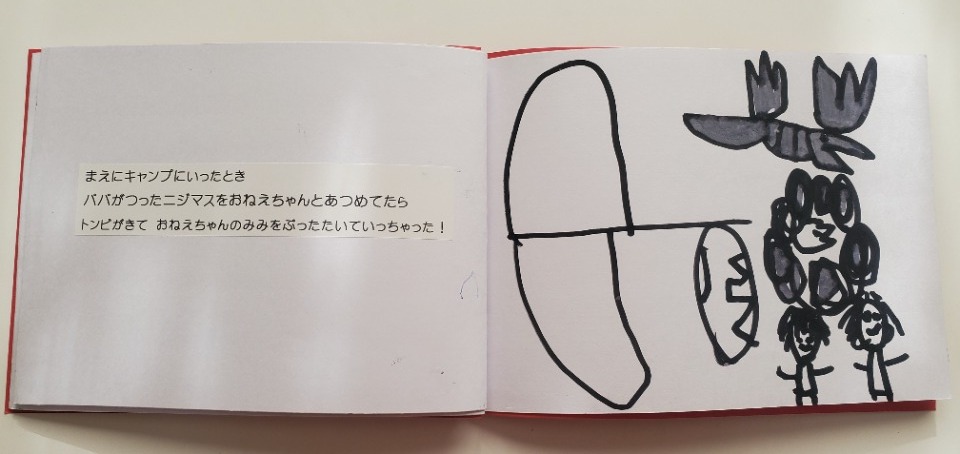 まえにキャンプにいったとき
パパがつったニジマスをおねえちゃんとあつめてたら
トンビがきて おねえちゃんのみみをぶったたいていっちゃった！